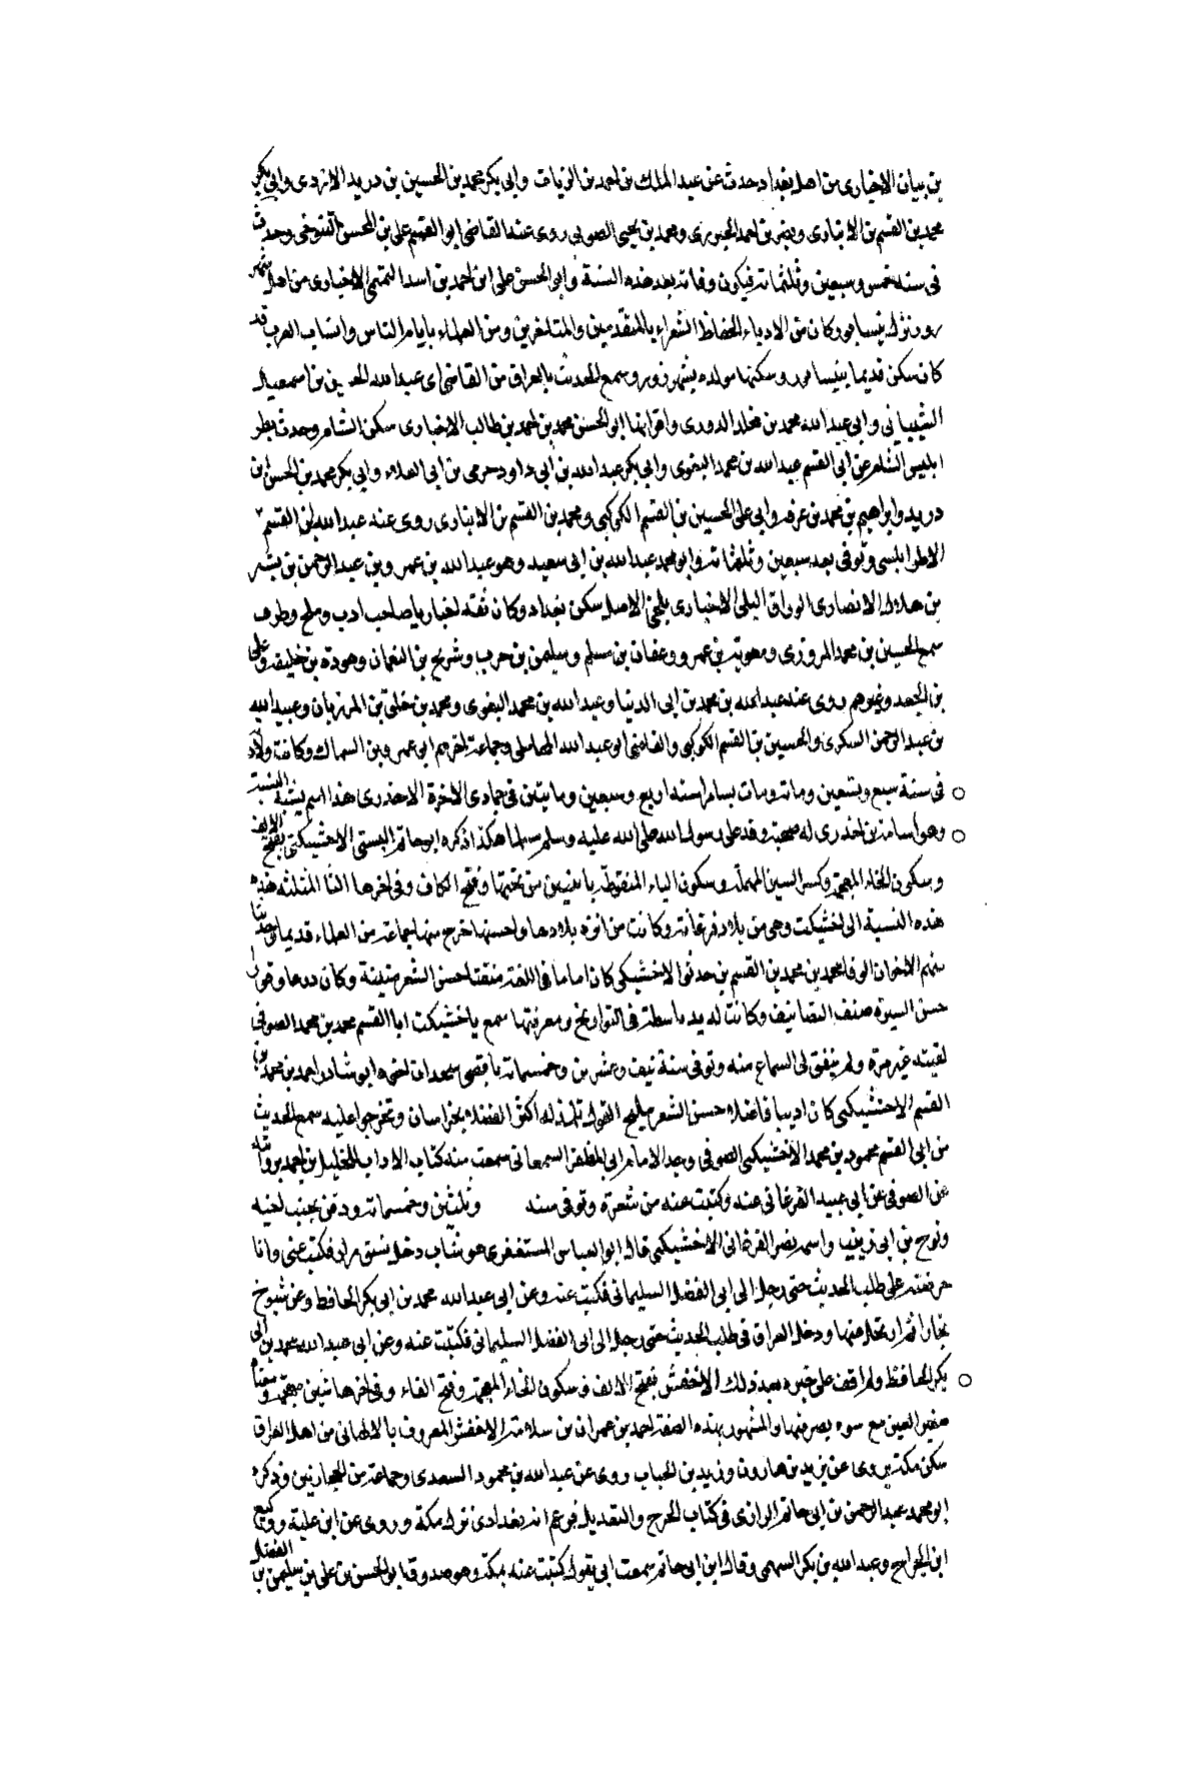 بن بيان الاخبارى من اهل بغداد حدث عن عبد الملك بن احمد بن الزيات وابى بكر محمد بن الحسين بن دريد الازدى وابى بكر
محمد بن القسم بن الانبارى وبصر بن احمد الخبزرى ومحمد بن يحيى الصولى روى عنه القاضى ابو القسم على بن المحسن التنوخى وحدث
فى سنة خمس وسبعين وثلثمائة فيكون وفاته بعد هذه السنة وابو الحسن على ابن احمد بن اسد التميمى الاخبارى من اهل شهر
زور نزل نيسابور وكان من الادباء الحفاظ الشعراء بالمتقدمين والمتاخرين ومن العلماء بايام الناس وانساب العرب قد
كان سكن قديما بنيسابور وسكنها مولده بشهرزور وسمع الحديث بالعراق من القاضى ابى عبد الله الحسين بن اسمعيل
الشيبانى وابى عبد الله محمد بن مخلد الدورى واقرانهما ابو الحسن محمد بن احمد بن طالب الاخبارى سكن الشام وحدث بطر
ابليس الشام عن ابى القسم عبد الله بن محمد البغوى وابى بكر عبد الله بن ابى داود حرمى بن ابى العلاء وابى بكر محمد بن الحسن ابن
دريد وابراهيم بن محمد بن عرفه وابى على الحسين بن القسم الكوكبى ومحمد بن القسم بن الانبارى روى عنه عبد الله بن القسم
الاطرابلسى وتوفى بعد سبعين وثلثمائة وابو محمد عبد الله بن ابى سعيد وهو عبد الله بن عمرو بن عبد الرحمن بن بشر
بن هلال الانصارى الوراق البلخى الاخبارى بلخى الاصل سكن بغداد وكان ثقه اخباريا صاحب ادب وملح وطرف
سمع الحسين بن محمد المروزى ومعوية بن عمرو وعفان بن مسلم وسليمن بن حرب وشريح بن النعمان وهودة بن خليفه وعلى
بن الجعد وغيرهم روى عنه عبد الله بن محمد بن ابى الدنيا وعبد الله بن محمد البغوى ومحمد بن خلف بن المرزبان وعبيد الله
بن عبد الرحمن السكرى والحسين بن القسم الكوكبى والقاضى ابو عبد الله المحاملى وجماعة اخرهم ابو عمرو بن السماك وكانت ولادته
فى سنة سبع وتسعين ومائة ومات بسامرا سنة اربع وسبعين ومايتين فى جمادى الاخرة الاخدرى هذا اسم يشبه النسبة
وهو اسامة بن اخدرى له صحبة وفد على رسول الله صلى الله عليه وسلم هكذا ذكره ابو حاتم البستى الاخسيكثى بفتح الالف
وسكون الخاء المعجمة وكسر السين المهملة وسكون الياء المنقوطة باثنين من تحتها وفتح الكاف وفى اخرها الثا المثلثة هذه
هذه النسبة الى اخشيكت وهى من بلاد فرغانة وكانت من انزه بلادها واحسنها خرج منها جماعة من العلماء قديما وحديثا
منهم الاخوان ابو الوفا محمد بن محمد بن القسم بن الاخشيكى كان اماما فى اللغة متقنا حسن الشعر متينة وكان
حسن السيرة صنف التصانيف وكانت له يد باسطة فى التواريخ ومعرفتها سمع باخشيكت ابا القسم محمد بن محمد الصوفى
لقيته غير مرة ولم يتفق لى السماع منه وتوفى سنة نيف وعشرين وخمسمائة اخوه ابو شاد احمد بن محمد بن
القسم الاخشيكثى كان اديبا فاضلا حسن الشعر مليح القول تلمذ له اكثر الفضلاء بخراسان وتخرجوا عليه سمع الحديث
من ابى القسم محمود بن محمد الاخشيكى الصوفى وجد الامام ابى المظفر السمعانى سمعت منه كتاب الاداب للخليل بن احمد
عن الصوفى عن ابى عبيد الفرغانى عنه وكتبت عنه من شعره وتوفى سنه وثلثين وخمسمائة ودفن بجنب اخيه
ونوح بن ابى زينب واسمه نصر الفرغانى الاخشيكثى قال ابو العباس المستغفرى هو شاب دخل نسف مرارا فكتب عنى وانا
حرضته على طلب الحديث حتى رحل الى ابى الفضل السليمانى فكتب عنه وعن ابى عبد الله محمد بن ابى بكر الحافظ وعن شيوخ
بخارا ثم ارتحل منها ودخل العراق فى طلب الحديث حتى رحل الى ابى الفضل السليمانى فكتبت عنه وعن ابى عبد الله محمد بن ابى
بكر الحافظ ولم اقف على خبره بعد ذلك الاخفش بفتح الالف وسكون الخاء المعجمة وفتح الفاء وفى اخرها شين معجمة ومعناه
صغير العين مع سوء بصر فيها والمشهور بهذه الصفة احمد بن عمران بن سلامة الاخفش المعروف بالالهانى من اهل العراق
سكن مكة يروى عن يزيد بن هارون وزيد بن الحباب روى عن عبد الله بن محمود السعدى وجماعة من الحجازيين وذكره
ابو محمد عبد الرحمن بن ابى حاتم الرازى فى كتاب الجرح والتعديل فزعم انه بغدادى نزل مكة وروى عن ابن علية ووكيع
ابن الجراح وعبد الله بن بكر السهمى وقال ابن ابى حاتم سمعت ابى يقول كتبت عنه بمكة وهو صدوق ابو الحسن بن على بن سليمن بن الفضل